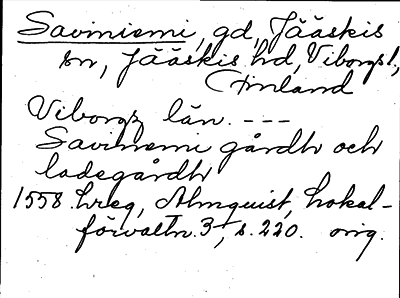 Saviniemi, gd, Jääskis
sn, Jääskis hd, Viborgs l.,
Finland
Viborgz län. ---
Savinemi gårdh och
ladegårdh
1558. hreg, Almquist, Lokal-
förvaltn. 3, s. 220. orig.